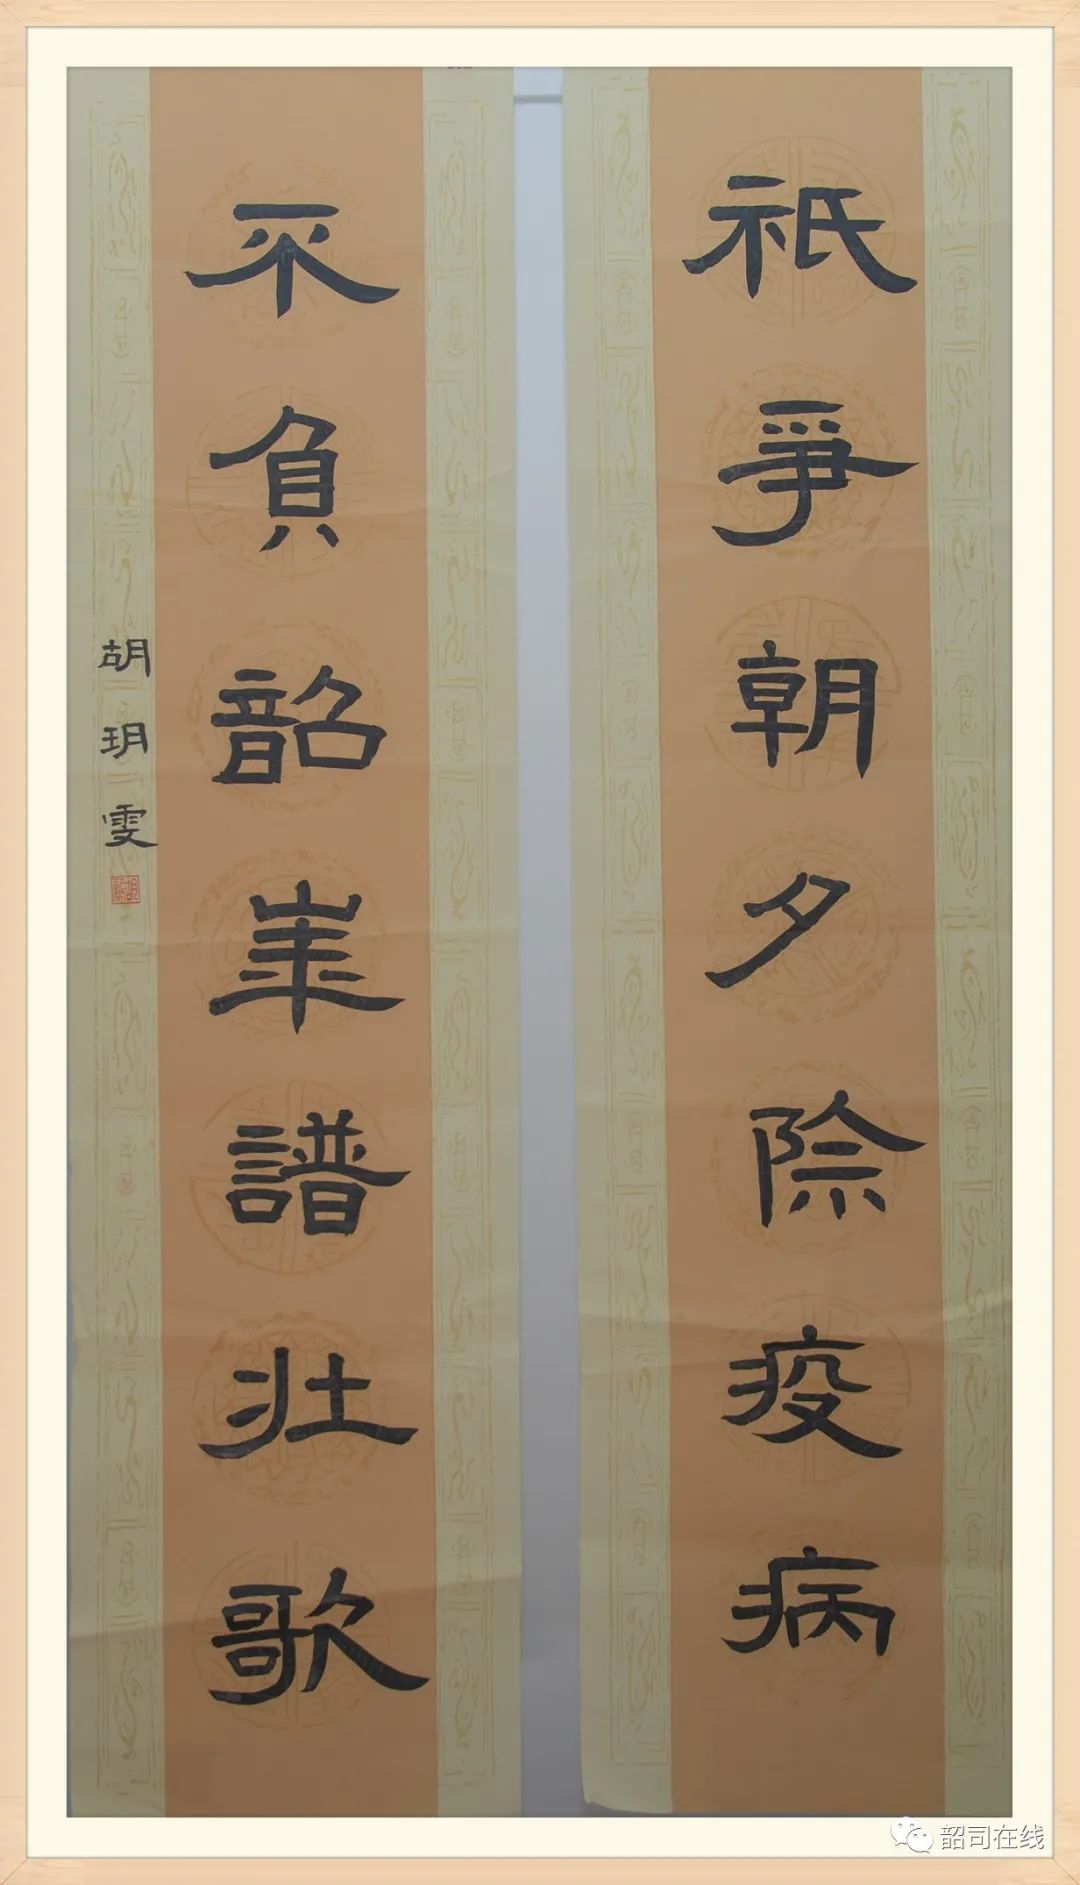 祇爭朝夕除疫病
不負韶華譜壯歌
胡玥雯
韶司在线